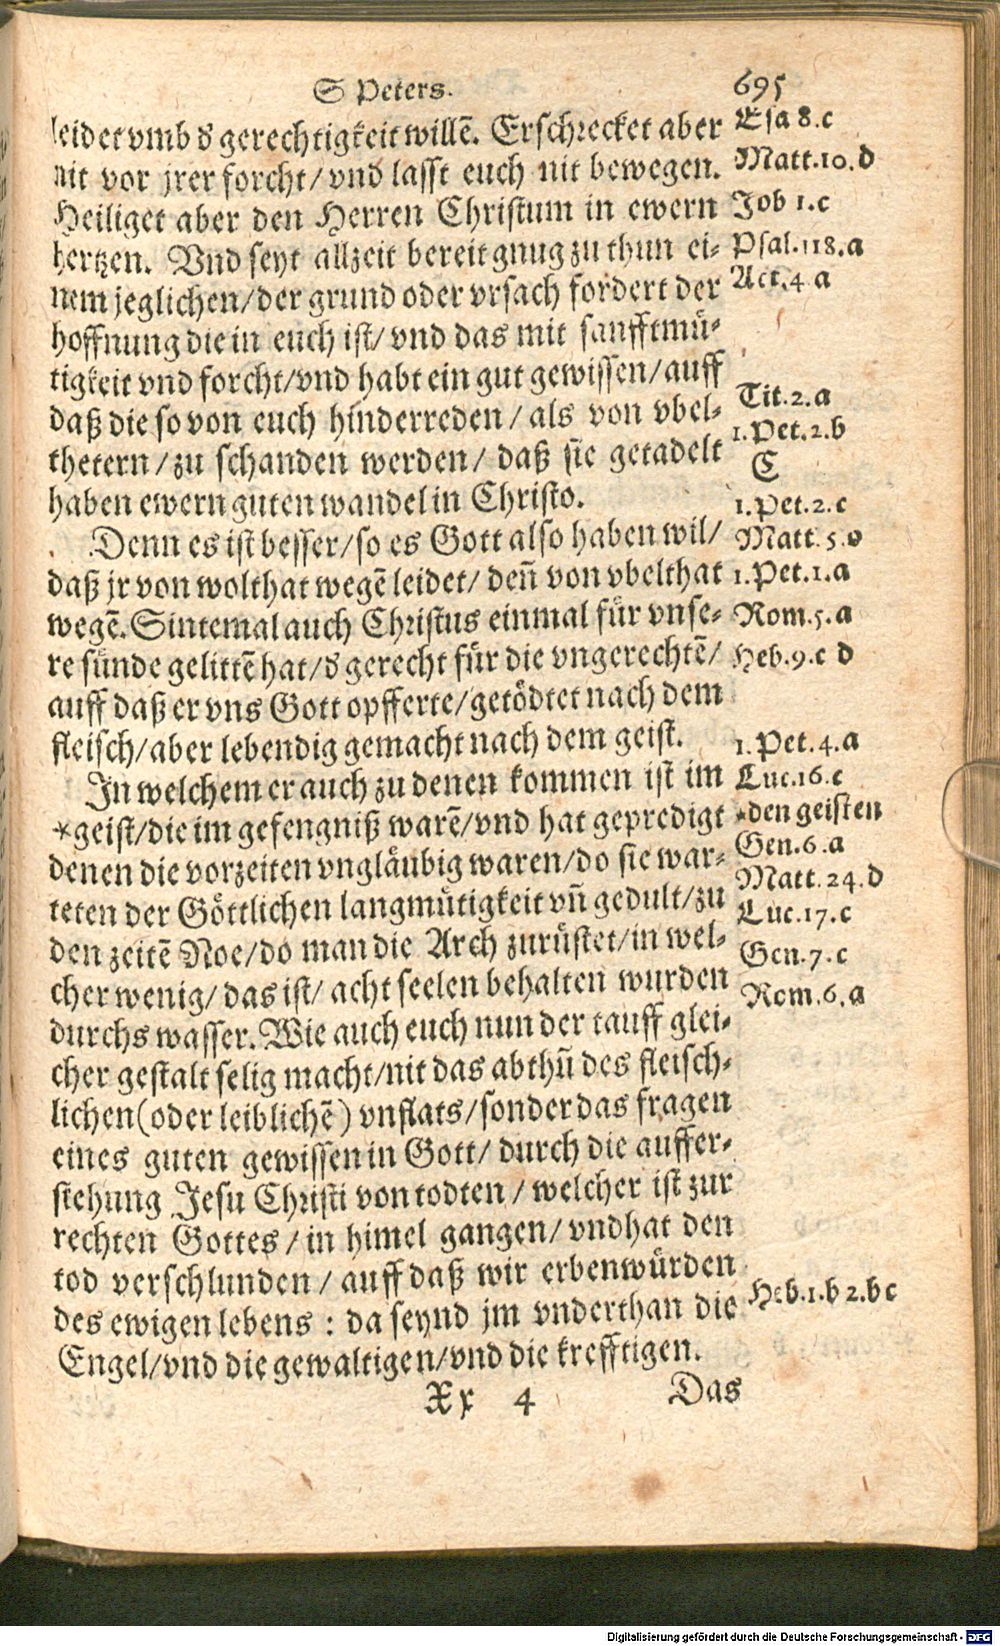 S Peters. 695
leidet vmb d̕ gerechtigkeit willẽ. Erschrecket aber
nit vor jrer forcht/ vnd lasst euch nit bewegen.
Heiliget aber den Herren Christum in ewern
hertzen. Vnd seyt allzeit bereit gnug zu thun ei-
nem jeglichen/ der grund oder vrsach fordert der
hoffnung die in euch ist/ vnd das mit sanfftmü-
tigkeit vnd forcht/ vnd habt ein gut gewissen/ auff
daß die so von euch hinderreden/ als von vbel-
thetern/ zu schanden werden/ daß sie getadelt
haben ewern guten wandel in Christo.
Denn es ist besser/ so es Gott also haben wil/
daß jr von wolthat wegẽ leidet/ deñ von vbelthat
wegẽ. Sintemal auch Christus einmal für vnse-
re sünde gelittẽ hat/ d̕ gerecht für die vngerechtẽ/
auff daß er vns Gott opfferte/ getödtet nach dem
fleisch/ aber lebendig gemacht nach dem geist.
In welchem er auch zu denen kommen ist im
*geist/ die im gefengniß warẽ/ vnd hat gepredigt
denen die vorzeiten vngläubig waren/ do sie war-
teten der Göttlichen langmütigkeit vñ gedult/ zu
den zeitẽ Noe/ do man die Arch zurüstet/ in wel-
cher wenig/ das ist/ acht seelen behalten wurden
durchs wasser. Wie auch euch nun der tauff glei-
cher gestalt selig macht/ nit das abthũ des fleisch-
lichen (oder leiblichẽ) vnflats/ sonder das fragen
eines guten gewissen in Gott/ durch die auffer-
stehung Jesu Christi von todten/ welcher ist zur
rechten Gottes/ in himel gangen/ vnd hat den
tod verschlunden/ auff daß wir erben würden
des ewigen lebens : da seynd jm vnderthan die
Engel/ vnd die gewaltigen/ vnd die krefftigen.
Xx 4 Das
Esa 8.c
Matt.10.d
Job 1.c
Psal.118.a
Act.4 a
Tit.2.a
1.Pet.2.b
C
1.Pet.2.c
Matt.5.
1.Pet.1.a
Rom.5.a
Heb.9.c d
1.Pet.4.a
Luc.16.c
*den geisten
Gen.6.a
Matt.24.d
Luc.17.c
Gen.7.c
Rom.6.a
Heb.1.b 2.b c
Digitalisierung gefördert durch die Deutsche Forschungsgemeinschaft - DFG